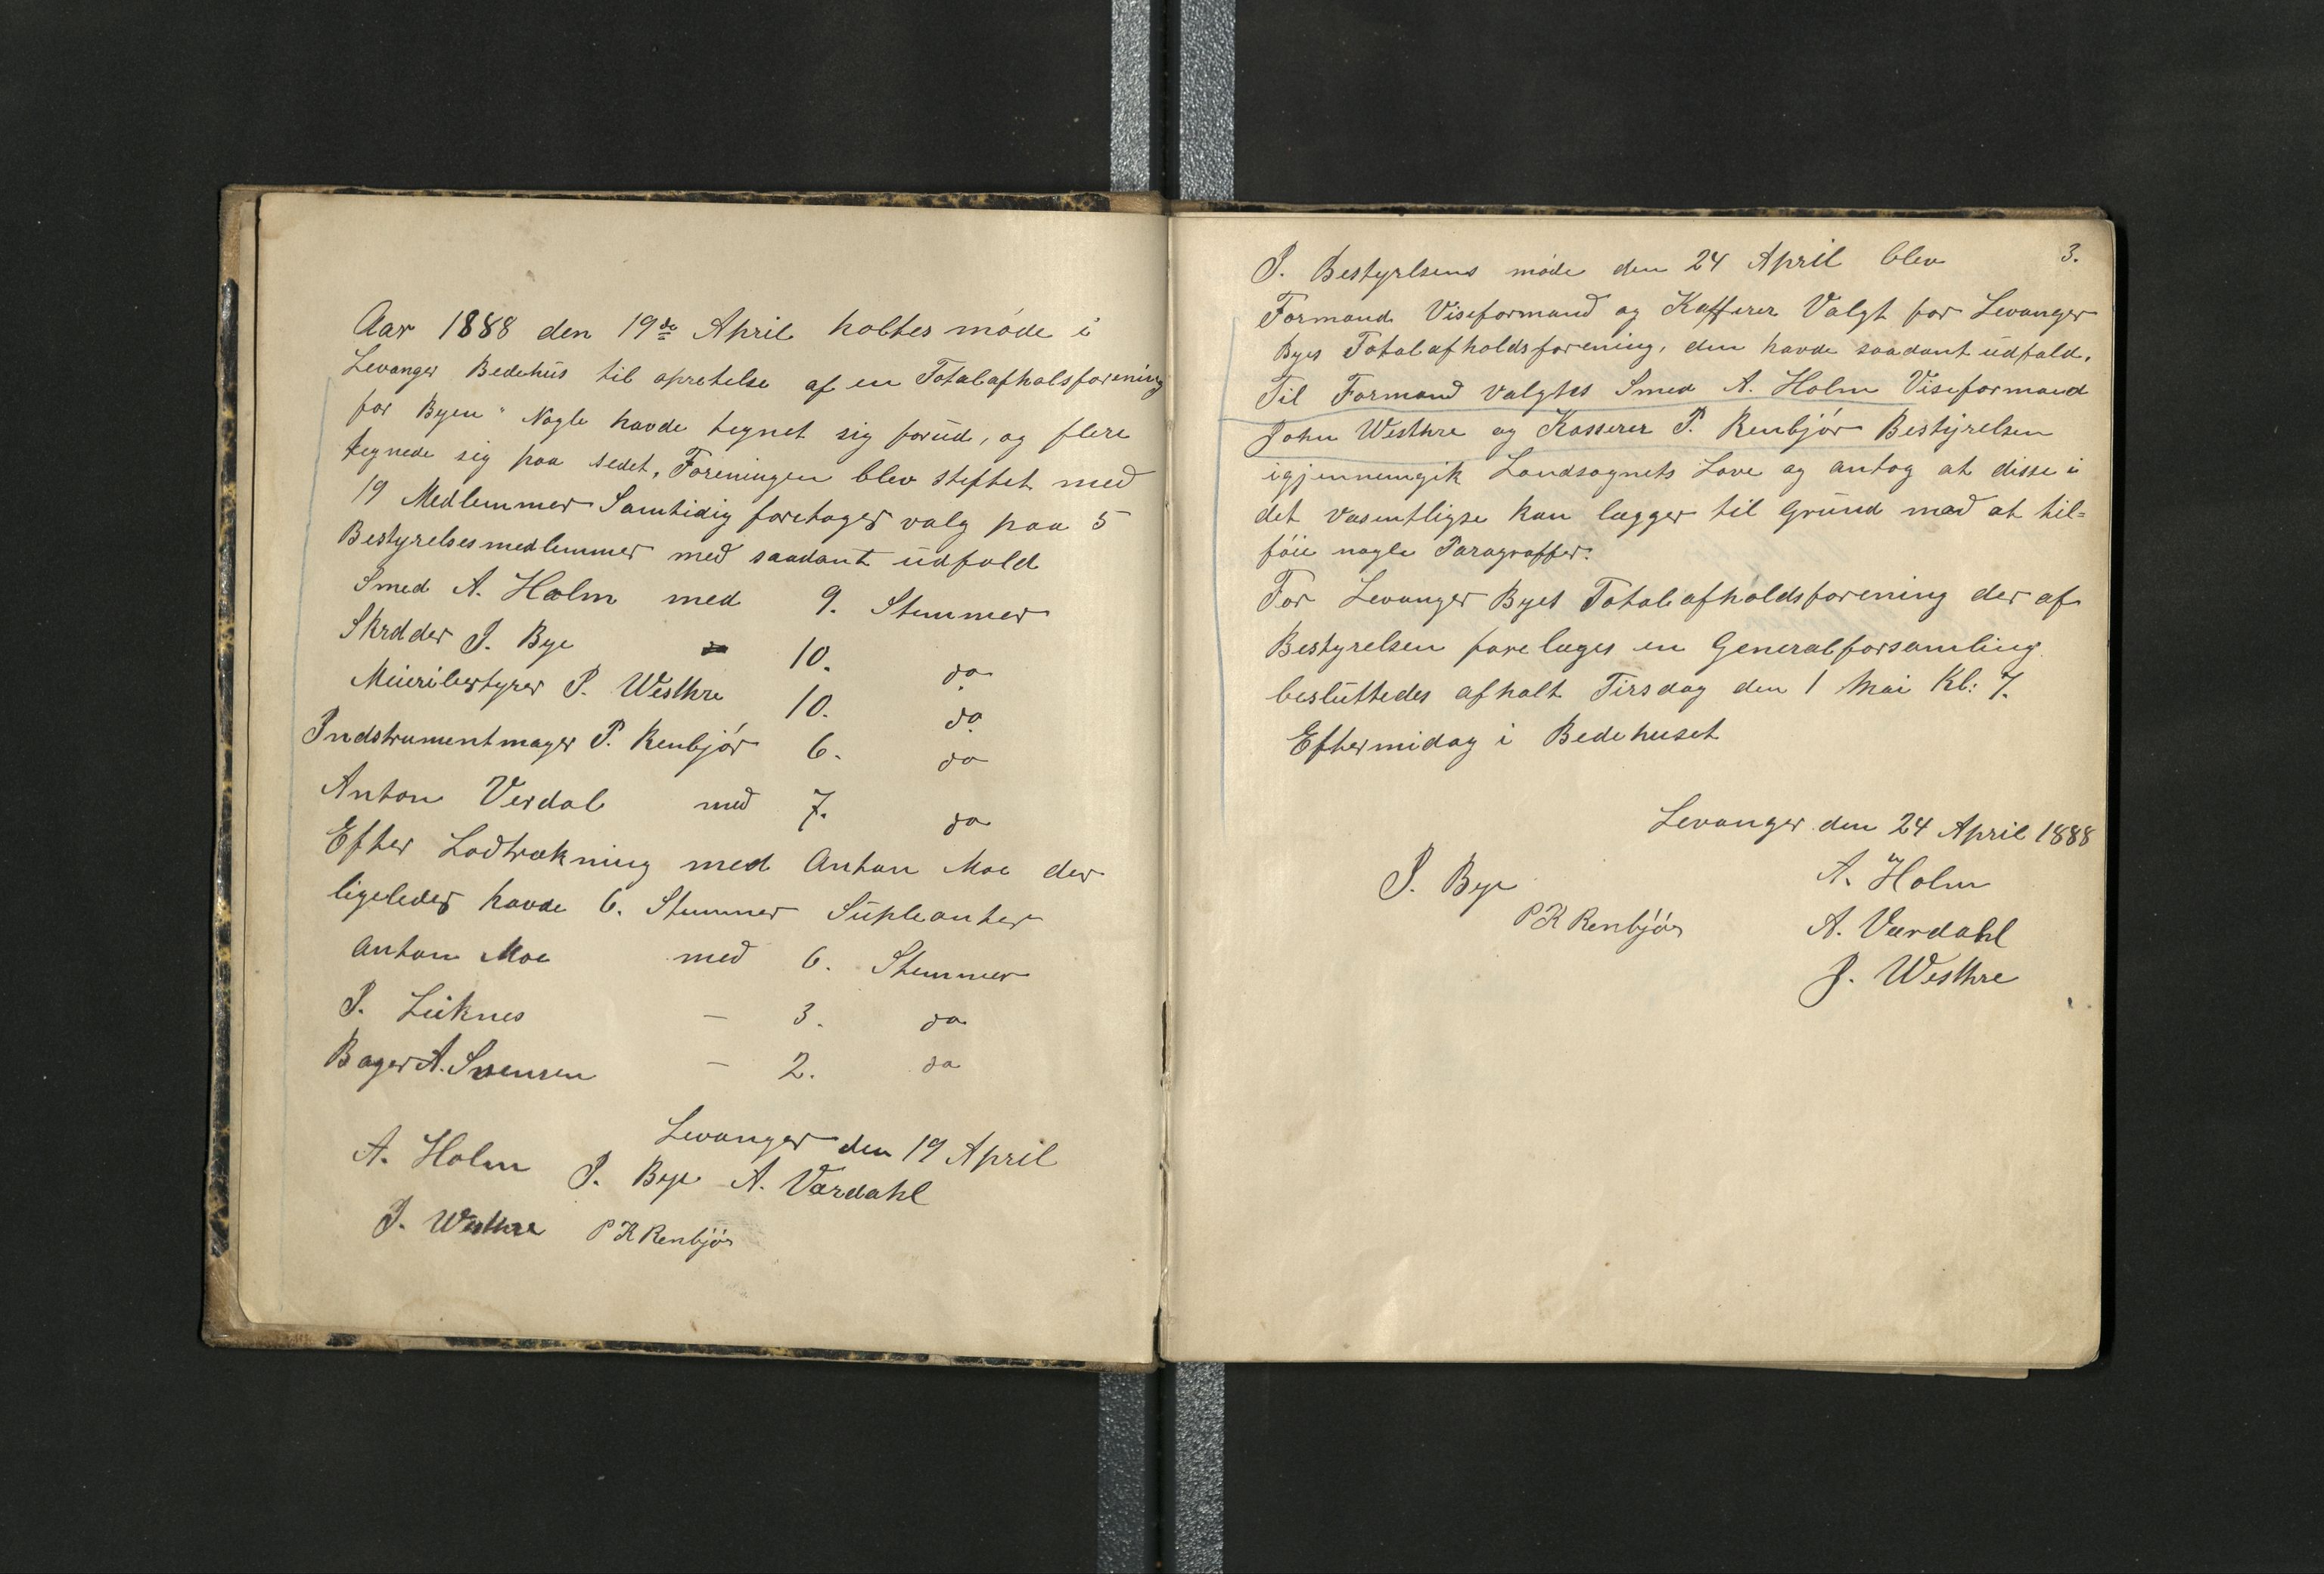 Aar 1888 den 19de April holtes møde i
Levanger Bedehus til opretelse af en Totalafholsforening
for Byen" Nogle havde tegnet sig forud, og flere
tegnede sig paa sedet, Foreningen blev stiftet med
19 Medlemmer Samtidig foretoges valg paa 5
Bestyrelsesmedlemmer med saadant udfald
Smed A. Holm med 9. Stemmer
Skrdder J. Bye 10. do
Meieribestyrer J. Westhre 10. do
Indstrumentmager P. Renbjør 6. do
Anton Verdal med 7. do
Efter Lodtrækning med Anton Moe der
ligeledes havde 6. Stemmer Supleanter
Anton Moe med 6. Stemmer
P. Leiknes — 3. do
Bager A. Svensen — 2. do
Levanger den 19 April
A. Holm J. Bye A. Værdahl
J. Westhre P K Renbjør
3.
I. Bestyrlsens møde den 24 April blev
Formand Viseformand og Kasserer Valgt for Levanger
Byes Totalafholdsforening, den havde saadant udfald.
Til Formand valgtes Smed A. Holm Viseformand
John Westhre og Kasserer P. Renbjør Bestyrelsen
igjennemgik Landsognets Love og antog at disse i
det væsentligse kan lægges til Grund med at til=
føie nogle Paragraffer.
For Levanger Byes Totalafholdsforening der af
Bestyrelsen forelæges en Generalforsamling
besluttedes afholt Tirsdag den 1 Mai Kl: 7.
Eftermidag i Bedehuset
Levanger den 24 April 1888
J. Bye A. Holm
P K Renbjør A. Værdahl
J. Westhre